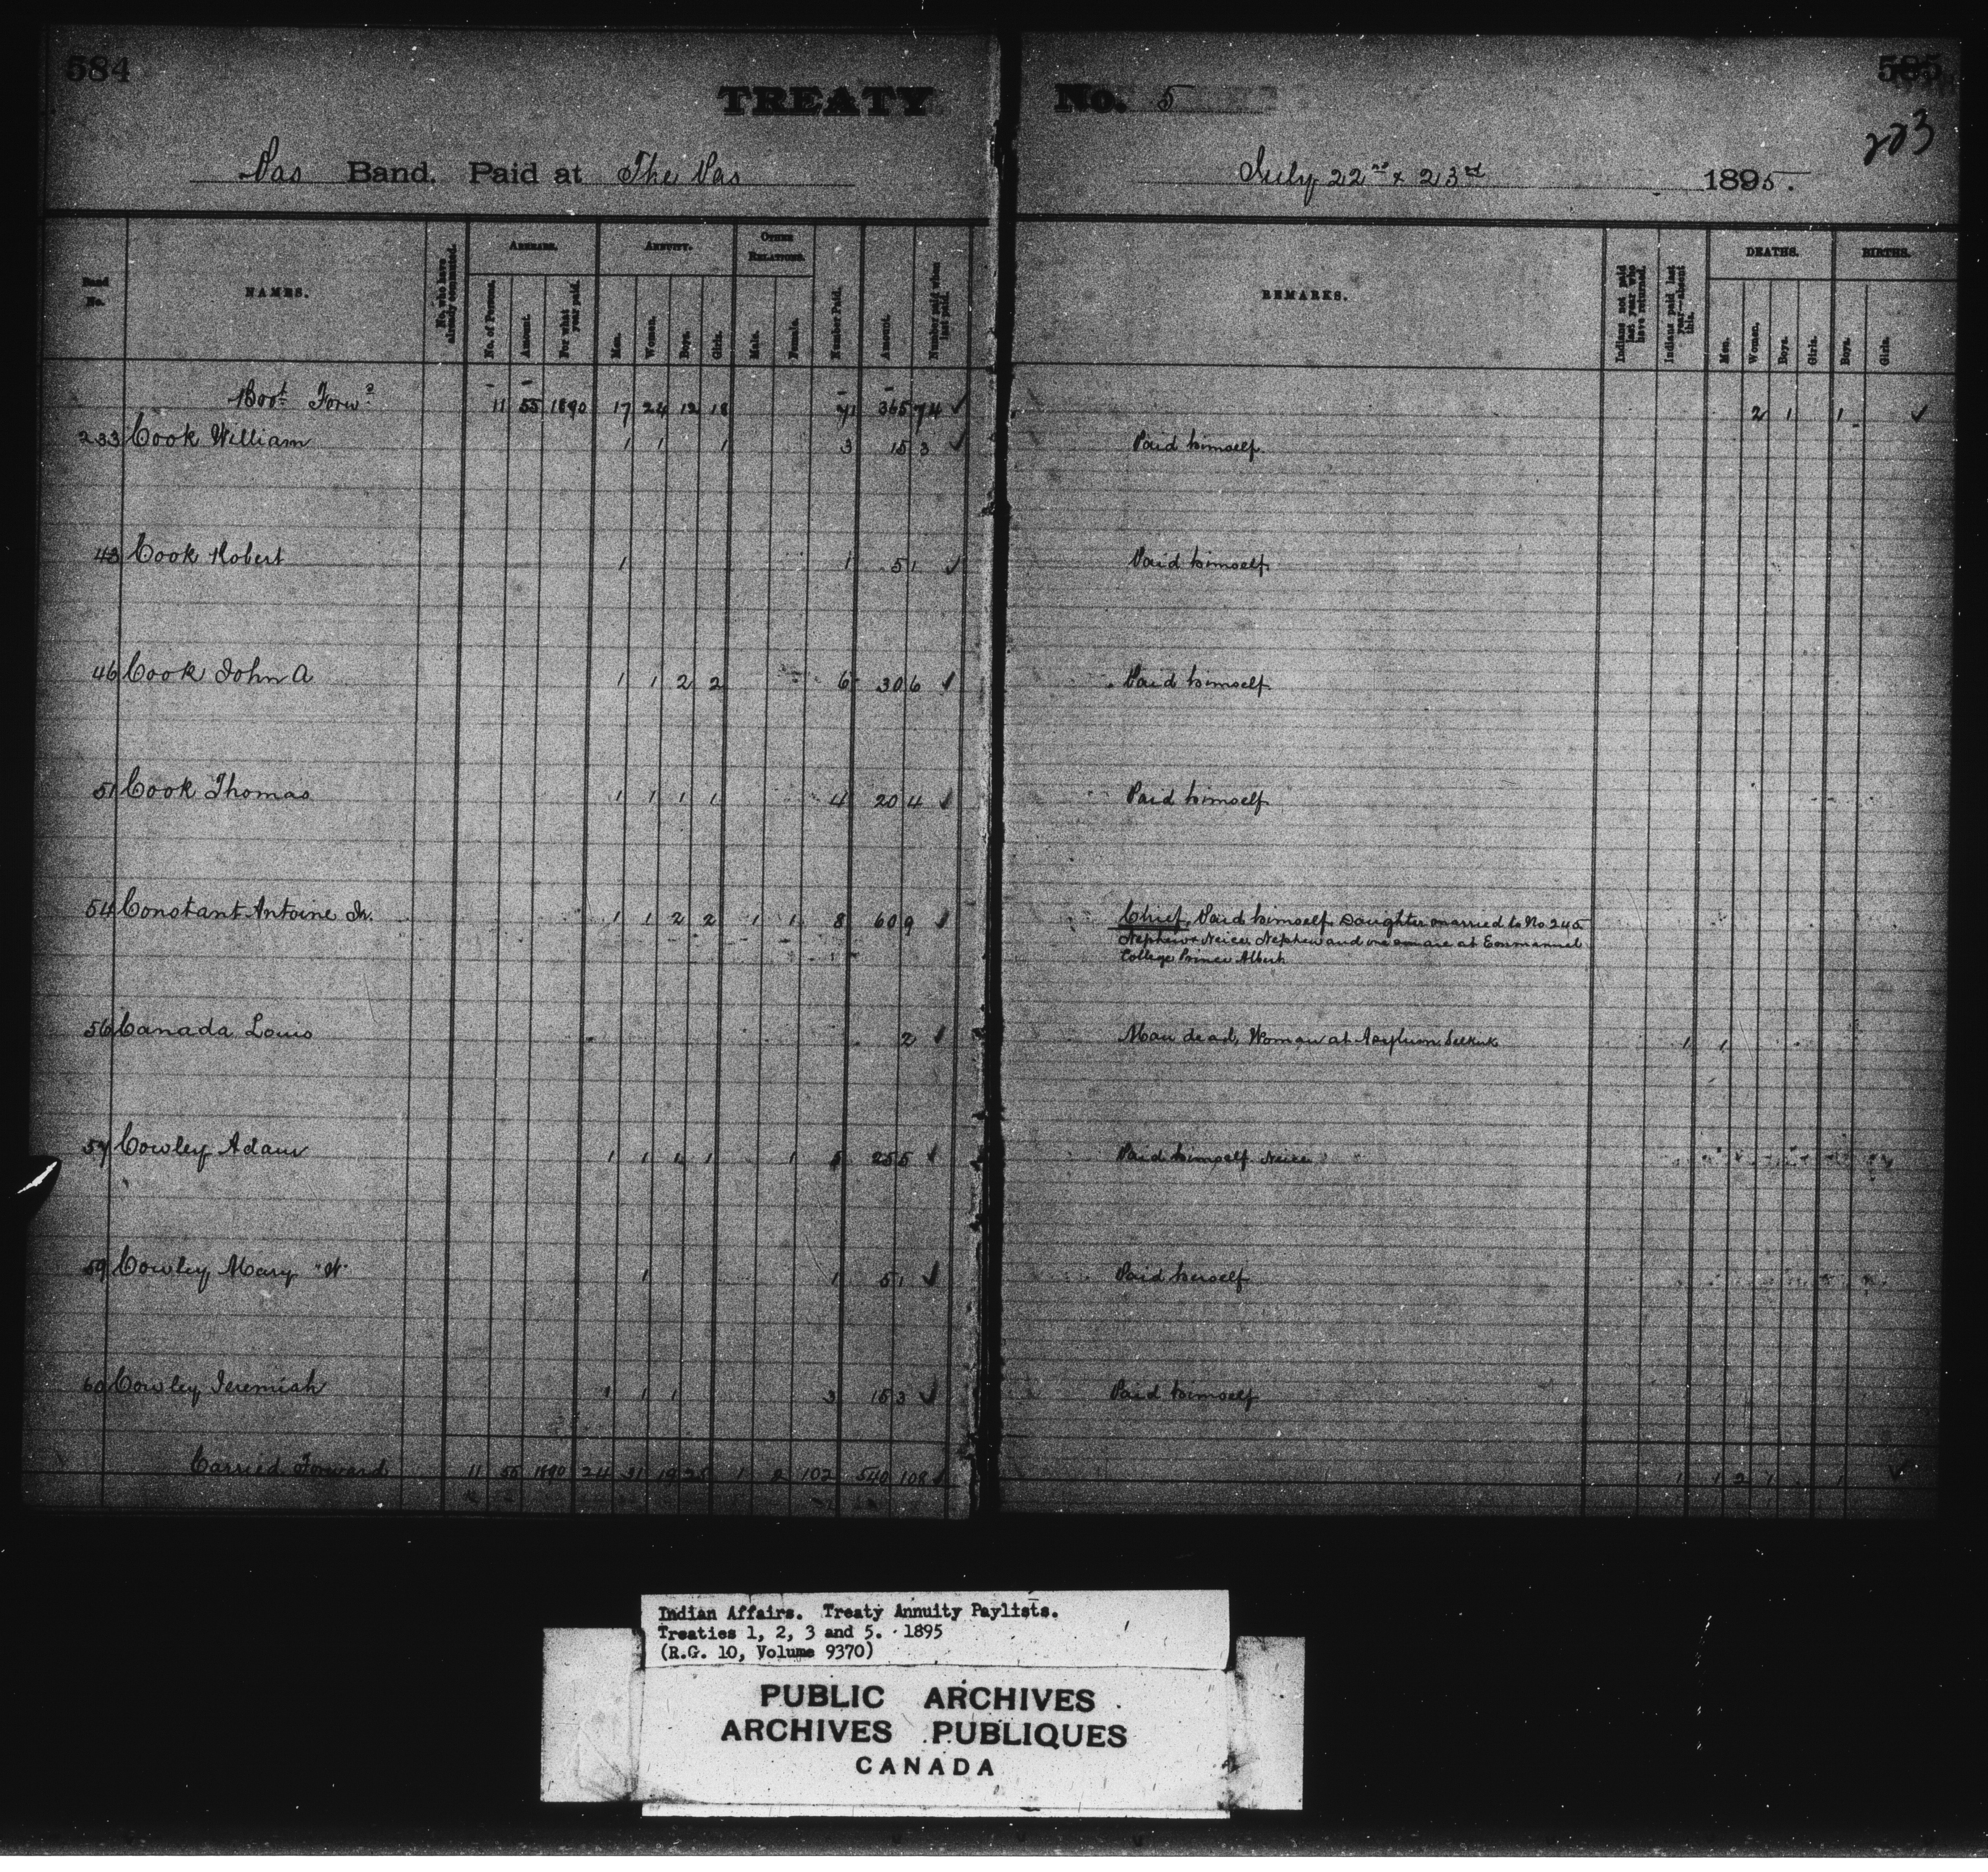 584
585
TREATY No. 5
203
Pas Band. Paid at The Pas July 22nd & 23rd 1895.
Band No.
NAMES.
No. who have already commuted.
ARREARS.
No. of Persons.
Amount.
For what year paid.
ANNUITY.
Men.
Women.
Boys.
Girls.
OTHER RELATIONS.
Male.
Female.
Number Paid.
Amount.
Number paid when last paid.
REMARKS.
Indians not paid last year who have returned.
Indians paid last year—absent this.
DEATHS.
Men.
Women.
Boys.
Girls.
BIRTHS.
Boys.
Girls.
Brot Forwd 11 55 1890 17 24 12 18 71 365 74 ✓ 2 1 1 ✓
233 Cook William 1 1 1 3 15 3 ✓ Paid himself
43 Cook Robert 1 1 5 1 ✓ Paid himself
46 Cook John A 1 1 2 2 6 30 6 ✓ Paid himself
51 Cook Thomas 1 1 1 1 4 20 4 ✓ Paid himself
54 Constant Antoine Sr. 1 1 2 2 1 1 8 60 9 ✓ Chief, Paid himself Daughter married to No 245
Nephew & Neice, Nephew and one son are at Emmanuel
College Prince Albert
56 Canada Louis 2 ✓ Man dead, Woman at Asylum Selkirk 1 1
57 Cowley Adam 1 1 1 1 1 5 25 5 ✓ Paid himself Neice
59 Cowley Mary 1 1 5 1 ✓ Paid herself
60 Cowley Jeremiah 1 1 1 3 15 3 ✓ Paid himself
Carried Forward 11 55 1890 24 31 19 25 1 2 102 540 108 ✓ 1 1 2 1 1 ✓
Indian Affairs. Treaty Annuity Paylists.
Treaties 1, 2, 3 and 5. 1895
(R.G. 10, Volume 9370)
PUBLIC ARCHIVES
ARCHIVES PUBLIQUES
CANADA